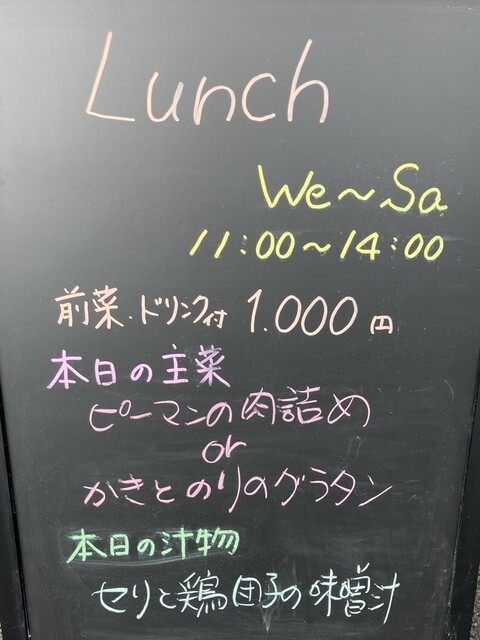 Lunch
We~Sa
11:00~14:00
前菜・ドリンク付 1.000円
本日の主菜
ピーマンの肉詰め
or
かきとのりのグラタン
本日の汁物
セリと鶏団子の味噌汁